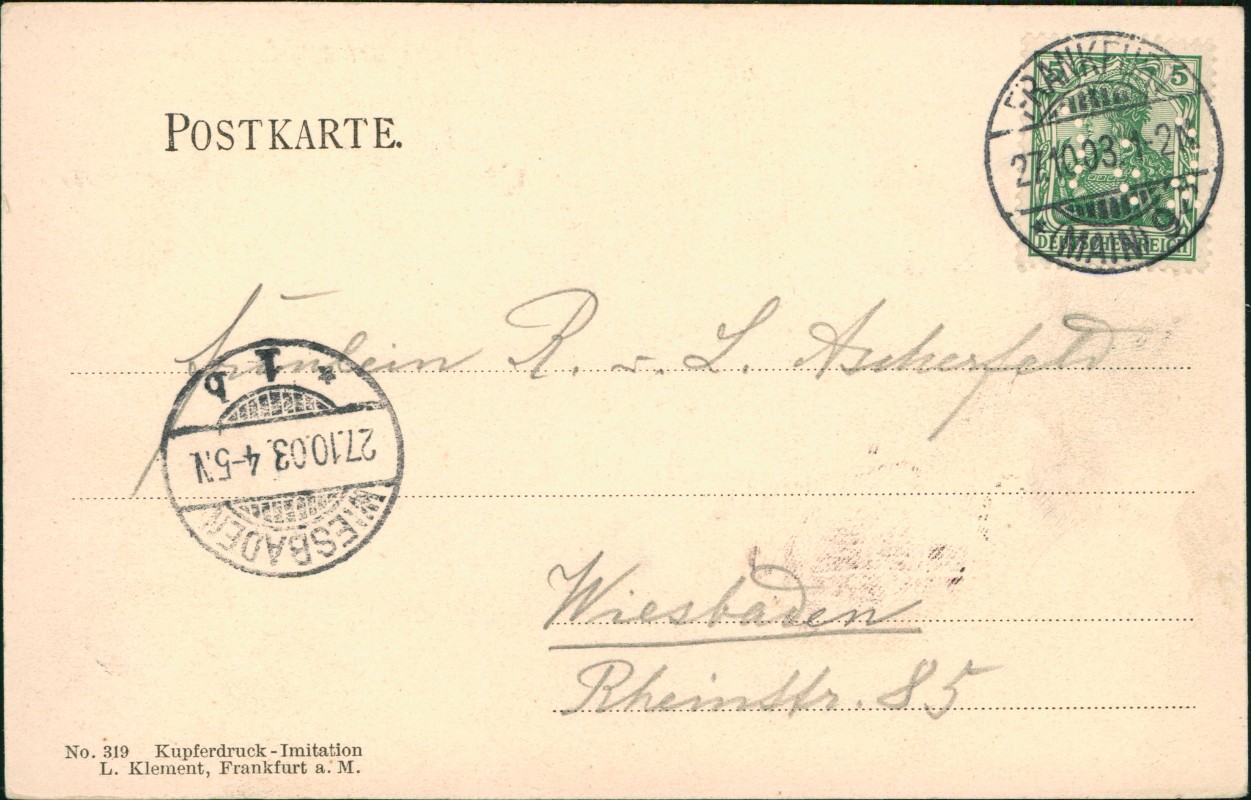 POSTKARTE.
5 5
DEUTSCHES REICH
FRANKFURT
27.10.03. 1-2N
* (MAIN) 9
Fräulein R. v. L. Ascherfeld
* 1 b
27.10.03. 4-5.N
WIESBADEN
Wiesbaden
Rheinstr. 85
No. 319 Kupferdruck-Imitation
L. Klement, Frankfurt a. M.